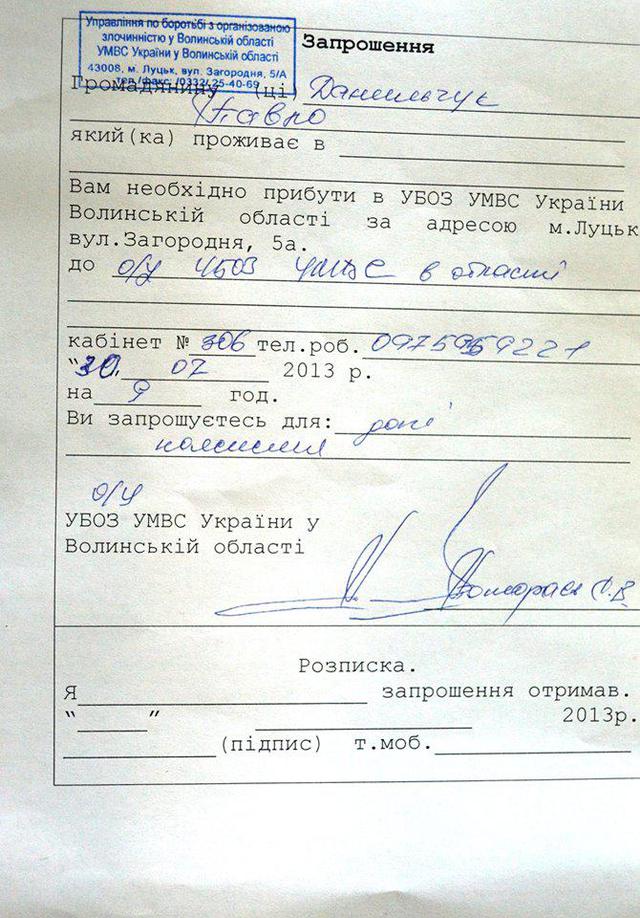 Управління по боротьбі з організованою
злочинністю у Волинській області
УМВС України у Волинській області
43008, м. Луцьк, вул. Загородня, 5/А
тел./факс: /0332/ 25-40-69
Запрошення
Громадянину (ці) Данильчук
Павло
який(ка) проживає в
Вам необхідно прибути в УБОЗ УМВС України
Волинській області за адресою м.Луцьк
вул.Загородня, 5а.
до о/у УБОЗ УМВС в області
кабінет № 306 тел.роб.
"30. 07 2013 р.
на 9 год.
Ви запрошуєтесь для: дачі
пояснення
о/у
УБОЗ УМВС України у
Волинській області
Розписка.
Я запрошення отримав.
" " 2013р.
(підпис) т.моб.